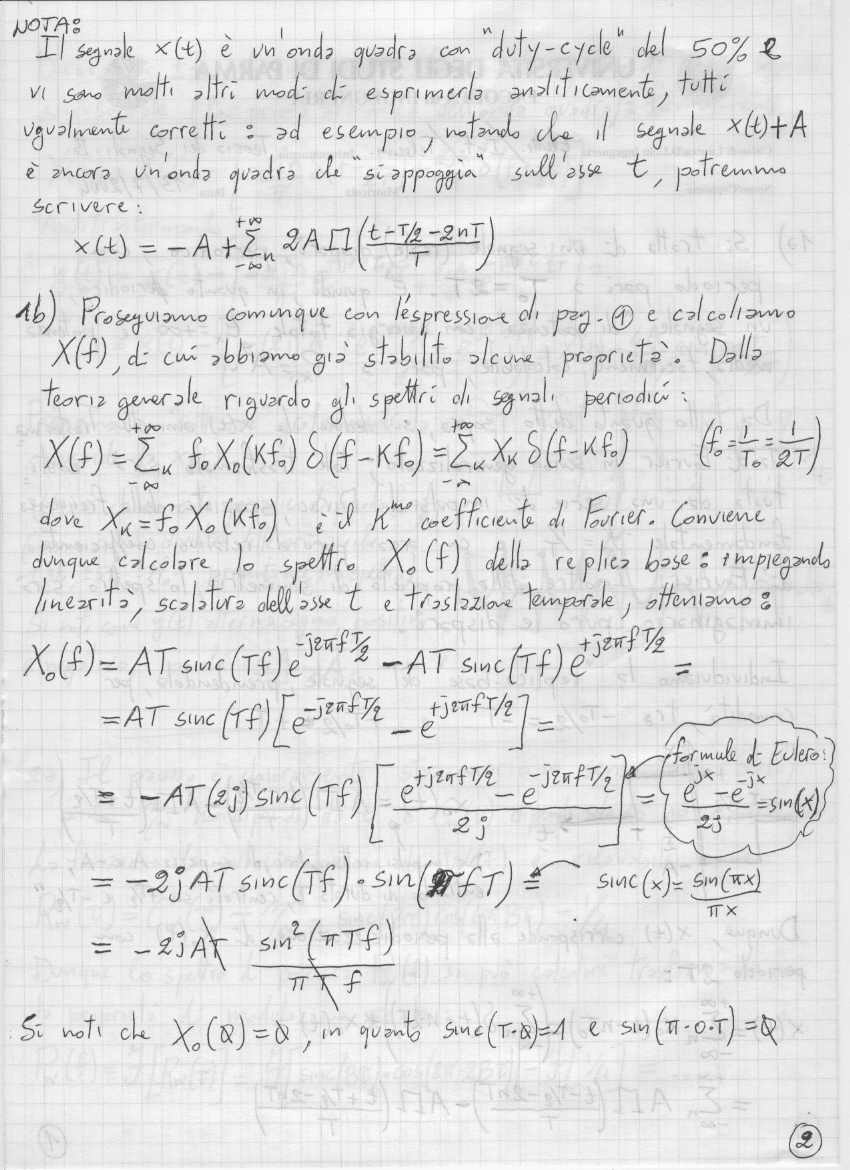 NOTA:
Il segnale x(t) è un'onda quadra con "duty-cycle" del 50% e
vi sono molti altri modi di esprimerla analiticamente, tutti
ugualmente corretti: ad esempio, notando che il segnale x(t)+A
è ancora un'onda quadra che "si appoggia" sull'asse t, potremmo
scrivere:
x(t) = -A + Σ_n_{-∞}^{+∞} 2A Π((t - T/2 - 2nT)/T)
1b) Proseguiamo comunque con l'espressione di pag. ① e calcoliamo
X(f), di cui abbiamo già stabilito alcune proprietà. Dalla
teoria generale riguardo gli spettri di segnali periodici:
X(f) = Σ_K_{-∞}^{+∞} f₀ X₀(Kf₀) δ(f-Kf₀) = Σ_K_{-∞}^{+∞} X_K δ(f-Kf₀) (f₀ = 1/T₀ = 1/2T)
dove X_K = f₀ X₀(Kf₀) è il K^mo coefficiente di Fourier. Conviene
dunque calcolare lo spettro X₀(f) della replica base: impiegando
linearità, scalatura dell'asse t e traslazione temporale, otteniamo:
X₀(f) = AT sinc(Tf) e^{-j2πfT/2} - AT sinc(Tf) e^{+j2πfT/2} =
= AT sinc(Tf) [e^{-j2πfT/2} - e^{+j2πfT/2}] =
= -AT(2j) sinc(Tf) [(e^{+j2πfT/2} - e^{-j2πfT/2})/2j] =
formule di Eulero:
(e^{jx} - e^{-jx})/2j = sin(x)
= -2jAT sinc(Tf) · sin(πfT) = sinc(x) = sin(πx)/πx
= -2jAT sin²(πTf)/(πTf)
Si noti che X₀(0) = 0, in quanto sinc(T·0)=1 e sin(π·0·T)=0
②